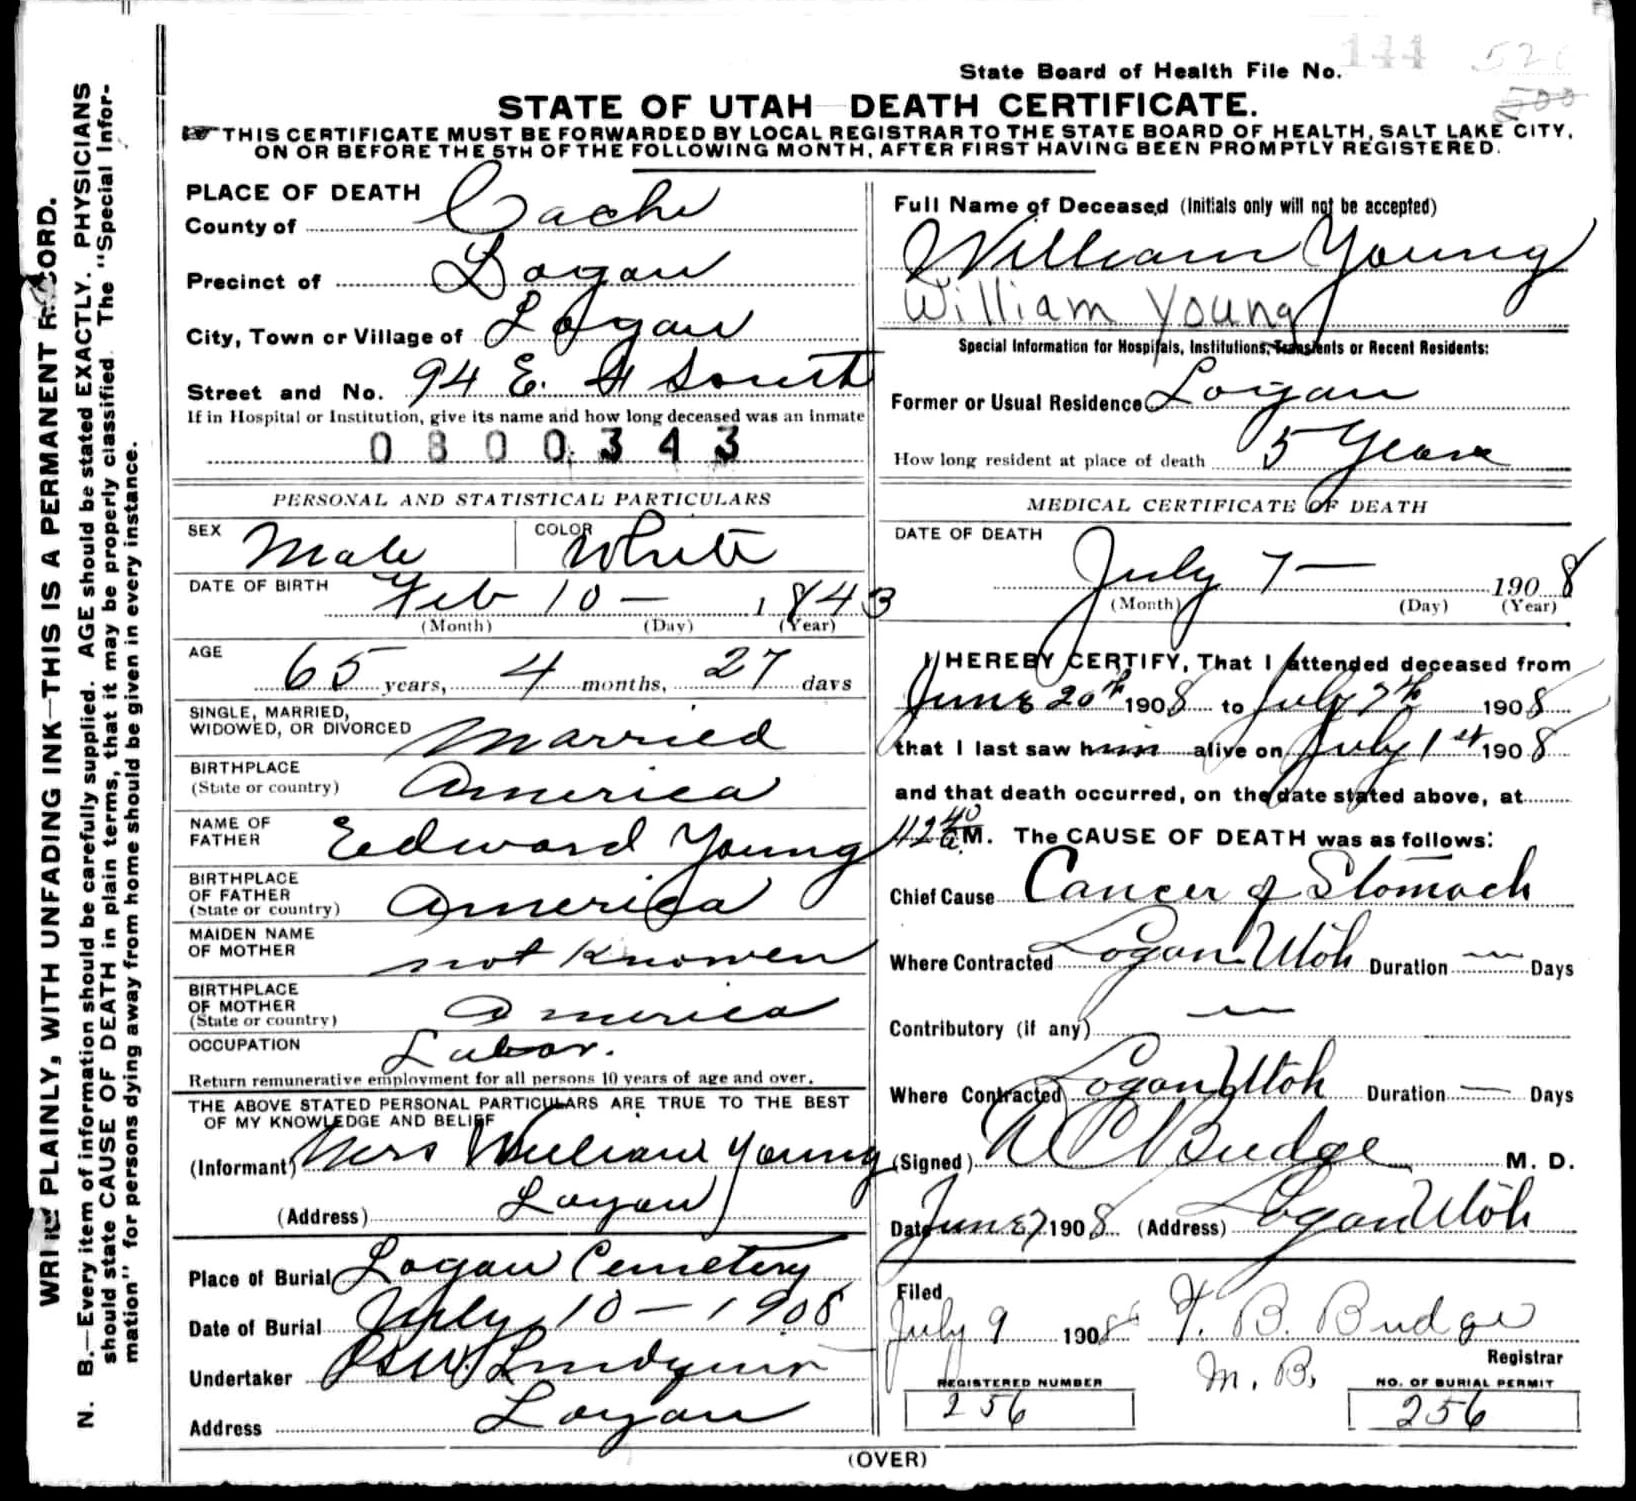 State Board of Health File No. 144
STATE OF UTAH DEATH CERTIFICATE.
THIS CERTIFICATE MUST BE FORWARDED BY LOCAL REGISTRAR TO THE STATE BOARD OF HEALTH, SALT LAKE CITY,
ON OR BEFORE THE 5TH OF THE FOLLOWING MONTH, AFTER FIRST HAVING BEEN PROMPTLY REGISTERED.
WRITE PLAINLY, WITH UNFADING INK—THIS IS A PERMANENT RECORD.
N. B.—Every item of information should be carefully supplied. AGE should be stated EXACTLY. PHYSICIANS
should state CAUSE OF DEATH in plain terms, that it may be properly classified. The "Special Infor-
mation" for persons dying away from home should be given in every instance.
PLACE OF DEATH
County of Cache
Precinct of Logan
City, Town or Village of Logan
Street and No. 94 E. 4 South
If in Hospital or Institution, give its name and how long deceased was an inmate
0800343
PERSONAL AND STATISTICAL PARTICULARS
SEX Male COLOR White
DATE OF BIRTH Feb 10 — 1843
(Month) (Day) (Year)
AGE 65 years, 4 months, 27 days
SINGLE, MARRIED,
WIDOWED, OR DIVORCED Married
BIRTHPLACE
(State or country) America
NAME OF
FATHER Edward Young
BIRTHPLACE
OF FATHER
(State or country) America
MAIDEN NAME
OF MOTHER not Knowen
BIRTHPLACE
OF MOTHER
(State or country) America
OCCUPATION Labor.
Return remunerative employment for all persons 10 years of age and over.
THE ABOVE STATED PERSONAL PARTICULARS ARE TRUE TO THE BEST
OF MY KNOWLEDGE AND BELIEF
(Informant) Mrs William Young
(Address) Logan
Place of Burial Logan Cemetery
Date of Burial July 10 — 1908
Undertaker Lindquist
Address Logan
Full Name of Deceased (Initials only will not be accepted)
William Young
William Young
Special Information for Hospitals, Institutions, Transients or Recent Residents:
Former or Usual Residence Logan
How long resident at place of death 5 Years
MEDICAL CERTIFICATE OF DEATH
DATE OF DEATH
July 7 — 1908
(Month) (Day) (Year)
I HEREBY CERTIFY, That I attended deceased from
June 20th 1908 to July 7th 1908
that I last saw him alive on July 1st 1908
and that death occurred, on the date stated above, at
M. The CAUSE OF DEATH was as follows:
Chief Cause Cancer of Stomach
Where Contracted Logan Utah Duration — Days
Contributory (if any) —
Where Contracted Logan Utah Duration — Days
(Signed) Budge M. D.
Date June 7 1908 (Address) Logan Utah
Filed
July 9 1908 T. B. Budge
Registrar
M. B.
REGISTERED NUMBER
256
NO. OF BURIAL PERMIT
256
(OVER)